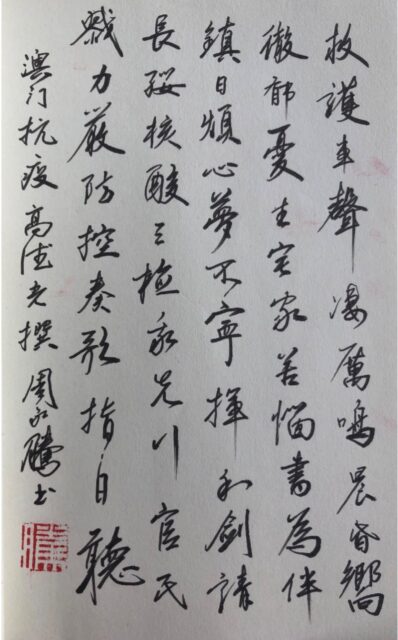 救護車聲淒厲鳴晨昏嚮
徹郁憂生宅家苦惱書為伴
鎮日煩心夢不寧揮利劍請
長纓核酸三檢我先行官民
戮力嚴防控奏歌指日聽
澳门抗疫高光撰周永騰书